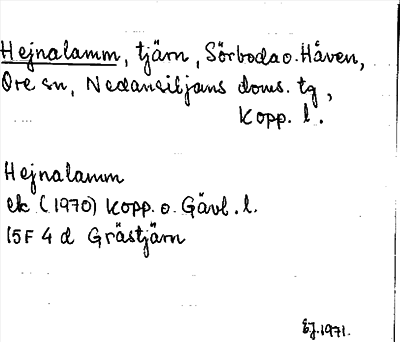 Hejnalamm, tjärn, Sörboda o. Håven,
Ore sn, Nedansiljans doms. tg,
Kopp. l.
Hejnalamm
ek (1970) Kopp. o. Gävl. l.
15F 4 d Grästjärn
EJ. 1971.